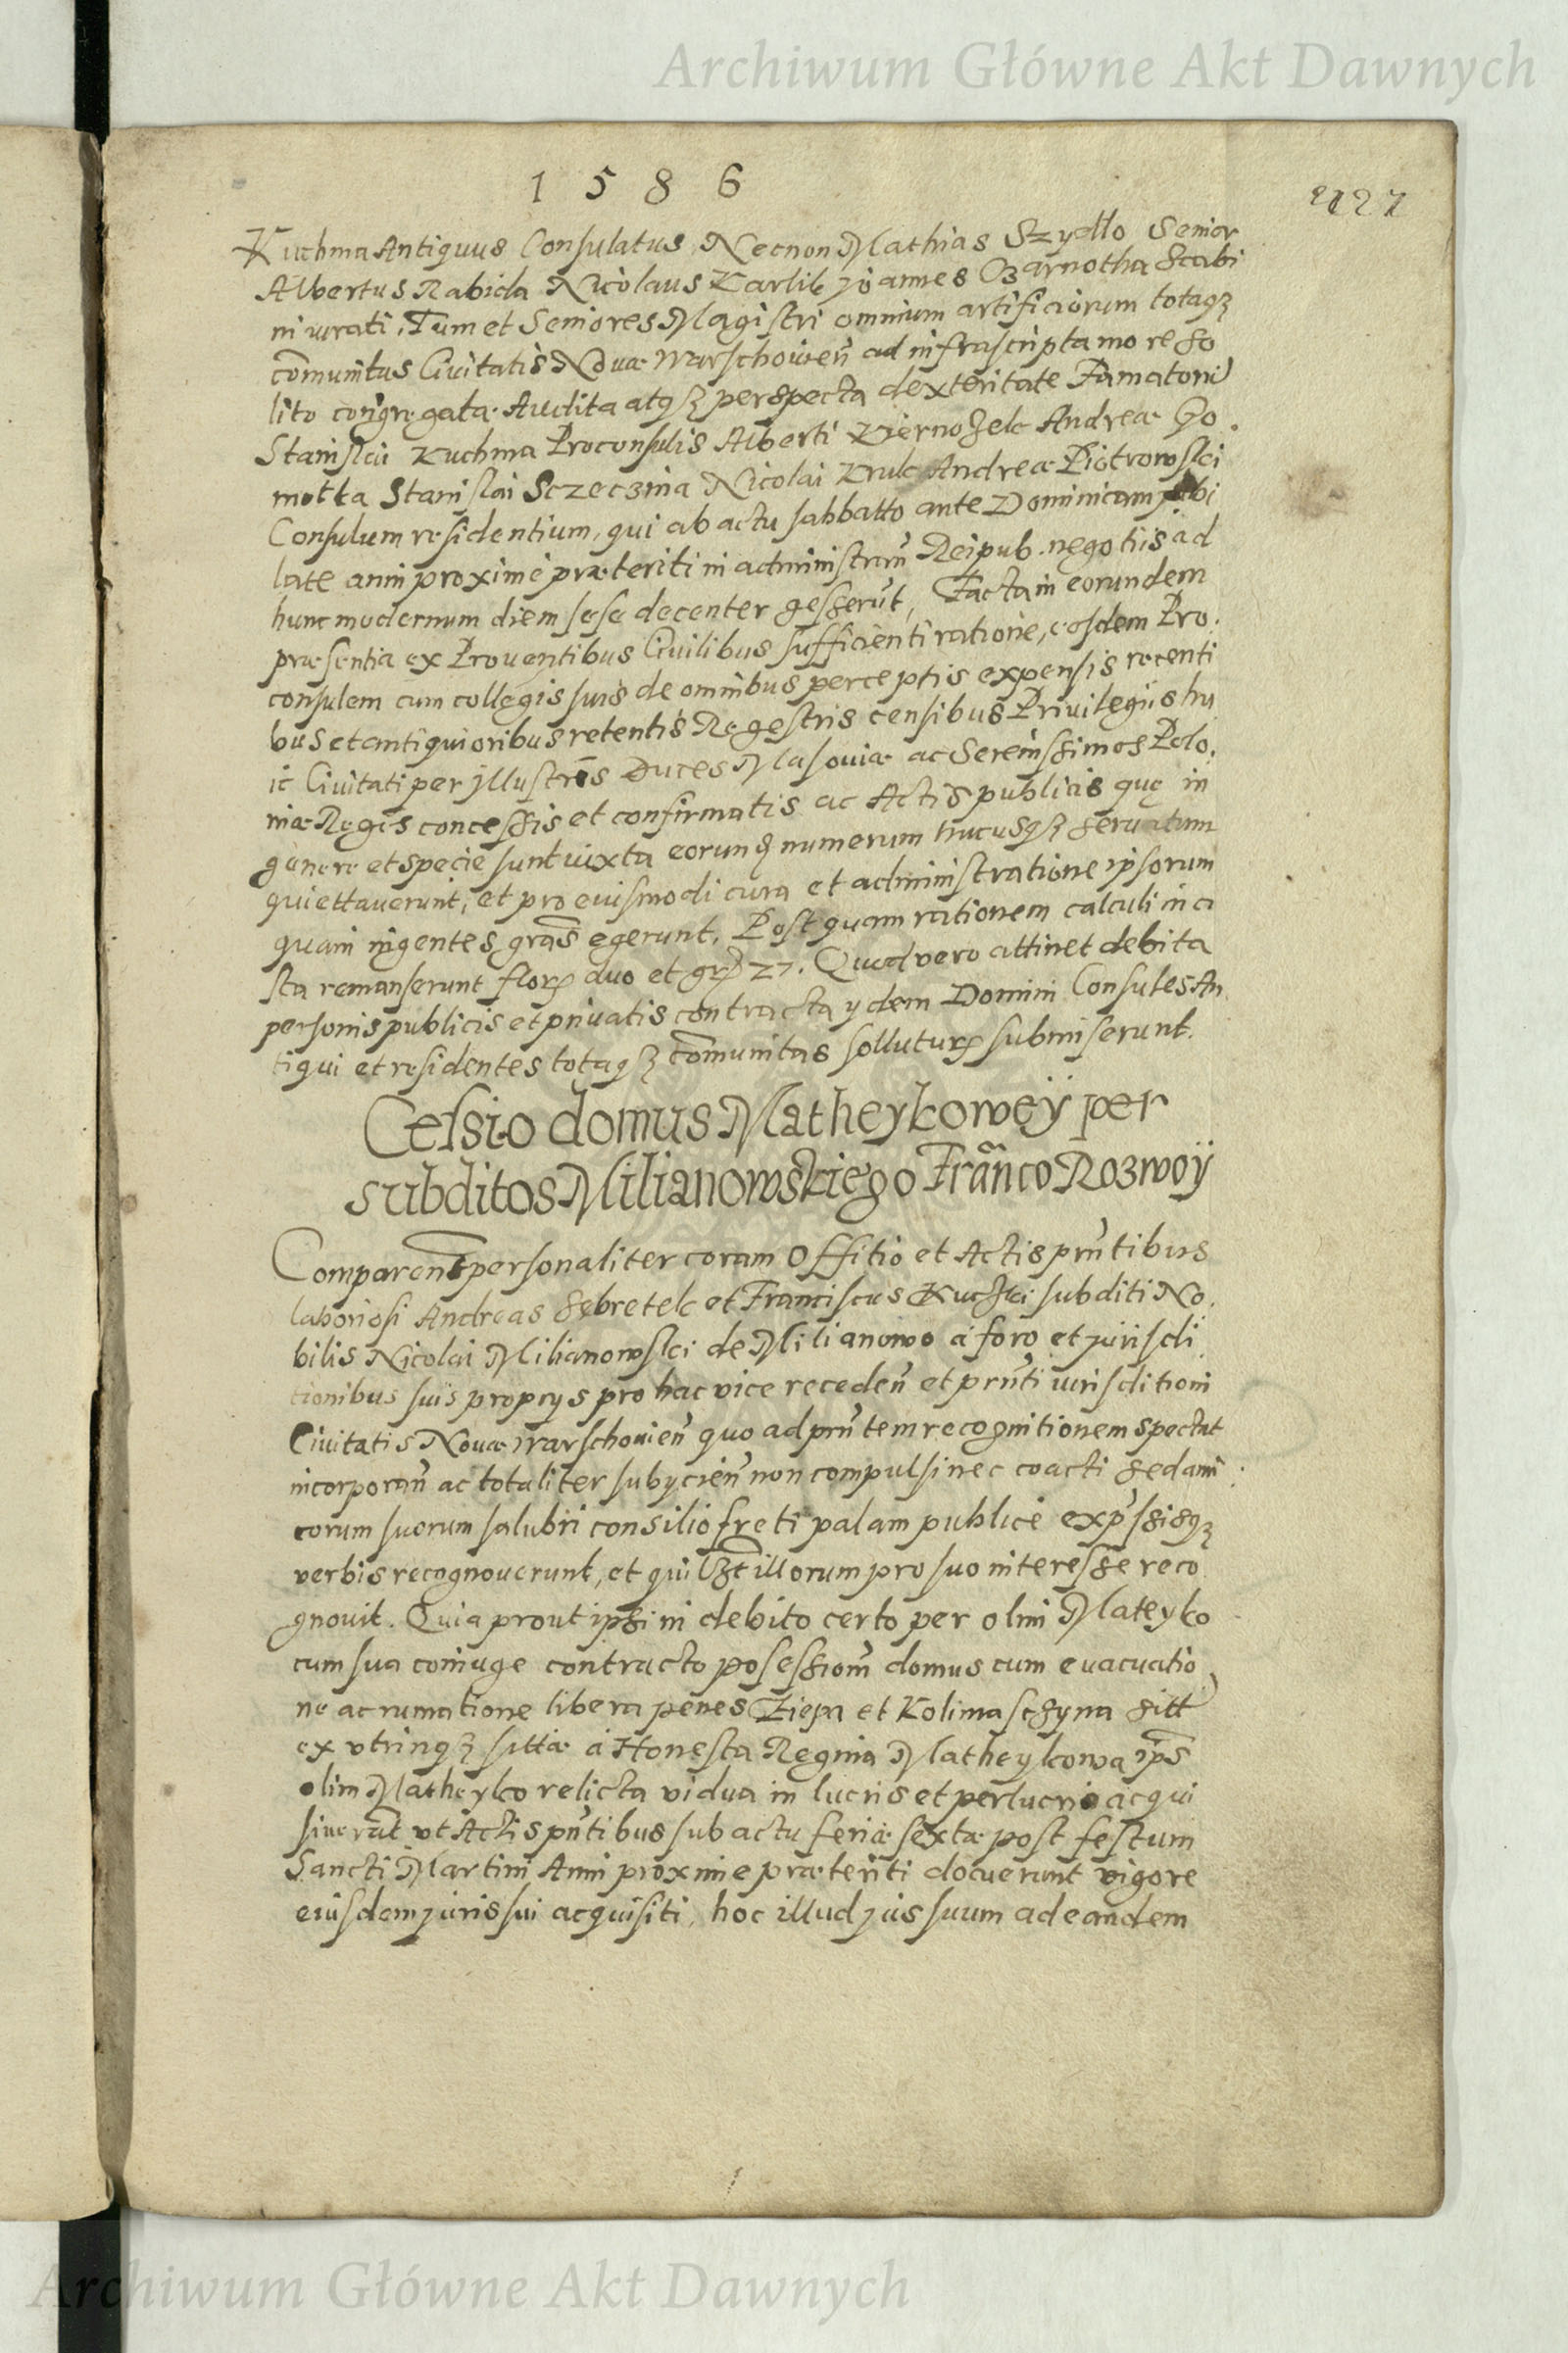 Archiwum Główne Akt Dawnych
1 5 8 6
127
Kuchma Antiquus Consulatus, Necnon Mathias Szydlo Senior
Albertus Rabida Nicolaus Karlik Joannes Czarnotha Scabi
ni iurati, Tum et Seniores Magistri omnium artificiorum totaqz
com̃unitas Ciuitatis Nouæ Warschouieñ ad infrascripta more so
lito congregata. Audita atqz perspecta dexteritate Famatorũ
Stanislai Kuchma Proconsulis Alberti Andreæ Go
motka Stanislai Sczeczina Nicolai Kruk Andreæ Piotrowski
Consulum residentium, qui ab actu sabbatto ante Dominicam Jubi
late anni proxime præteriti in administrãn Reipub. negotiis ad
hunc modernum diem sese decenter gesserũt, Facta in eorundem
præsentia ex Prouentibus Ciuilibus sufficienti ratione, eosdem Pro
consulem cum collegis suis de omnibus perceptis expensis recenti
bus et antiquioribus retentis Regestris censibus Priuilegiis hu
ic Ciuitati per Illustres Duces Masouiæ ac Serenissimos Polo
niæ Reges concessis et confirmatis ac Actis publicis quę in
genere et specie sunt iuxta eorund numerum hucusqz seruatum
quiettauerunt, et pro eiusmodi cura et administratione ipsorum
quam ingentes grãs egerunt. Post quam rationem calculi in ci
sta remanserunt flor duo et gr 27. Quod vero attinet debita
personis publicis et priuatis contracta ydem Domini Consules An
tiqui et residentes totaqz com̃unitas sollutur submiserunt.
Cessio domus Matheykowey per
subditos Milianowskiego Franco Rozwoÿ
Comparens personaliter coram Offitio et Actis prñtibus
laboriosi Andreas Sebretek et Franciscus subditi No
bilis Nicolai Milianowski de Milianowo a foro et jurisdi
tionibus suis proprys pro hac vice recedeñ et prñti iurisditioni
Ciuitatis Nouæ Warschouieñ quo ad prñtem recognitionem spectat
incorporañ ac totaliter subycieñ non compulsi nec coacti sed ami
corum suorum salubri consilio freti palam publice exprssisqz
verbis recognouerunt, et quilzt illorum pro suo interesse reco
gnouit. Quia prout ipsi in debito certo per olim Mateyko
cum sua coniuge contracto posessionẽ domus cum euacuatio
ne ac rumatione libera penes Ziepa et Kolimaschyna sitt
ex vtrinqz sittæ a Honesta Regina Matheykowa ipš
olim Matheyko relicta vidua in lucris et perlucris acqui
siuerãt vt Actis pñtibus sub actu feriæ sextæ post festum
Sancti Martini Anni proxime præteriti docuerunt vigore
eiusdem juris sui acquisiti, hoc illud jus suum ad eandem
Archiwum Główne Akt Dawnych